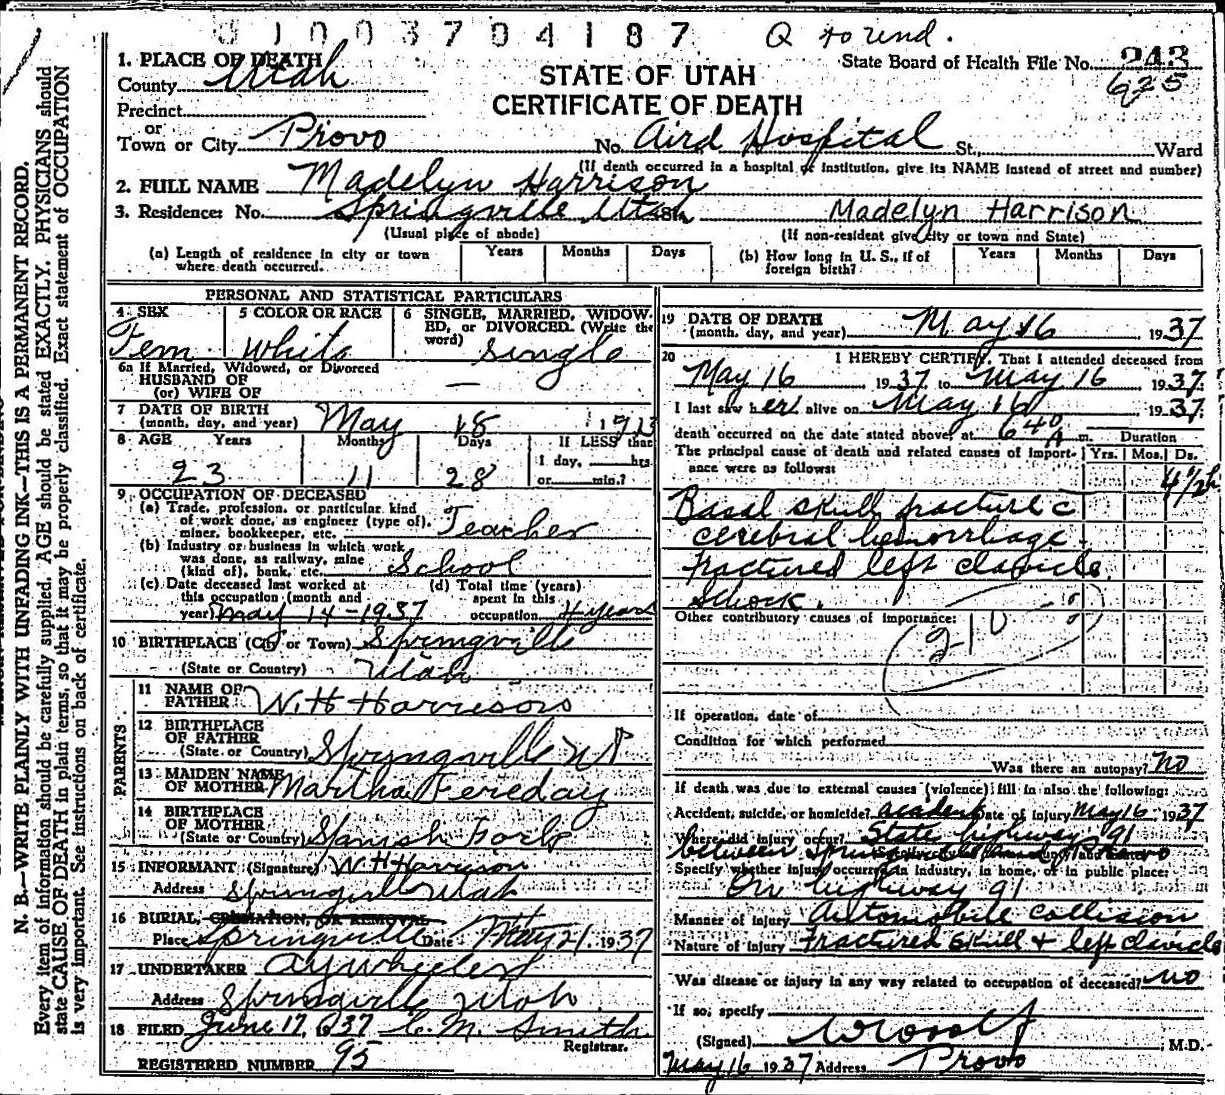 Q to und.
1. PLACE OF DEATH
State Board of Health File No. 243
County Utah
STATE OF UTAH
625
CERTIFICATE OF DEATH
Precinct
or
Town or City Provo No. Aird Hospital St., Ward
(If death occurred in a hospital or institution, give its NAME instead of street and number)
2. FULL NAME Madelyn Harrison
3. Residence: No. Springville Utah Madelyn Harrison
(Usual place of abode) (If non-resident give city or town and State)
(a) Length of residence in city or town where death occurred. Years Months Days
(b) How long in U. S., if of foreign birth? Years Months Days
PERSONAL AND STATISTICAL PARTICULARS
4 SEX Fem
5 COLOR OR RACE White
6 SINGLE, MARRIED, WIDOWED, or DIVORCED. (Write the word) single
6a If Married, Widowed, or Divorced
HUSBAND OF
(or) WIFE OF —
7 DATE OF BIRTH
(month, day, and year) May 18 1913
8 AGE Years Months Days If LESS than
23 11 28 1 day, hrs.
or min.?
9 OCCUPATION OF DECEASED
(a) Trade, profession, or particular kind
of work done, as engineer (type of),
miner, bookkeeper, etc. Teacher
(b) Industry or business in which work
was done, as railway, mine
(kind of), bank, etc. School
(c) Date deceased last worked at
this occupation (month and
year) May 14-1937
(d) Total time (years)
spent in this
occupation 4 years
10 BIRTHPLACE (City or Town) Springville
(State or Country) Utah
PARENTS
11 NAME OF
FATHER W.H Harrison
12 BIRTHPLACE
OF FATHER
(State or Country) Springville
13 MAIDEN NAME
OF MOTHER Martha Fereday
14 BIRTHPLACE
OF MOTHER
(State or Country) Spanish Fork
15 INFORMANT (Signature) W H Harrison
Address Springville Utah
16 BURIAL, CREMATION, OR REMOVAL
Place Springville Date May 21, 1937
17 UNDERTAKER A Y Wheeler
Address Springville Utah
18 FILED June 17, 1937 C. M. Smith
Registrar.
REGISTERED NUMBER 95
19 DATE OF DEATH
(month, day, and year) May 16 1937
20 I HEREBY CERTIFY, That I attended deceased from
May 16 1937 to May 16, 1937
I last saw her alive on May 16 1937
death occurred on the date stated above, at 6 40 A m. Duration
The principal cause of death and related causes of importance were as follows: Yrs. Mos. Ds.
4 1/2 h
Basal skull fracture c
cerebral hemorrhage
fractured left clavicle
Schock.
Other contributory causes of importance:
210
If operation, date of
Condition for which performed
Was there an autopsy? no
If death was due to external causes (violence) fill in also the following:
Accident, suicide, or homicide? accident Date of injury May 16 1937
Where did injury occur? State highway 91
between Springville and Provo
Specify whether injury occurred in industry, in home, or in public place:
On highway 91
Manner of injury Automobile collision
Nature of injury Fractured skull + left clavicle
Was disease or injury in any way related to occupation of deceased? no
If so, specify
(Signed) M.D.
May 16 1937 Address Provo
N. B.—WRITE PLAINLY WITH UNFADING INK—THIS IS A PERMANENT RECORD.
Every item of information should be carefully supplied. AGE should be stated EXACTLY. PHYSICIANS should
state CAUSE OF DEATH in plain terms, so that it may be properly classified. Exact statement of OCCUPATION
is very important. See instructions on back of certificate.